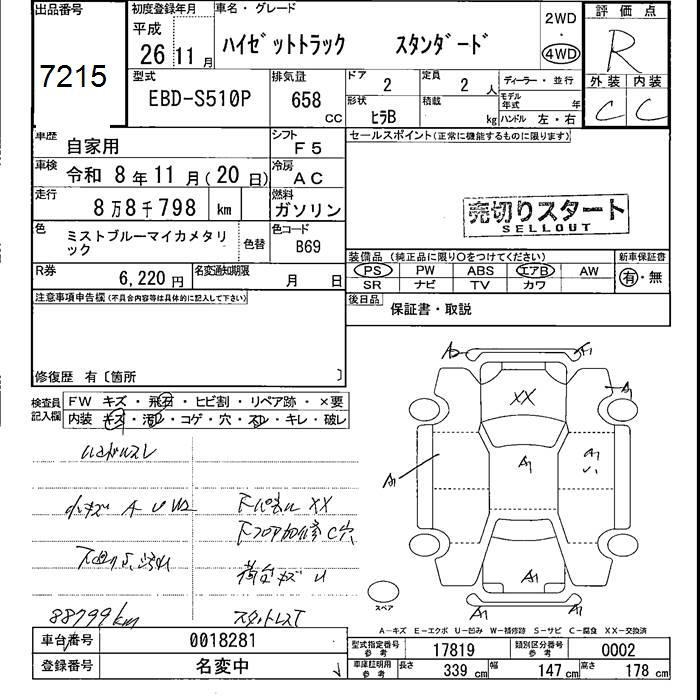 出品番号 初度登録年月 車名・グレード 2WD 評価点
7215 平成 26 11月 ハイゼットトラック スタンダード 4WD R
型式 排気量 ドア 2 定員 2人 ディーラー・並行 外装 内装
EBD-S510P 658cc 形状 ヒラB 積載 kg モデル年式 年 ハンドル 左・右 C C
車歴 自家用 シフト F5 セールスポイント(正常に機能するものに限ります)
車検 令和 8年 11月(20日) 冷房 AC
走行 8万8千798 km 燃料 ガソリン
売切りスタート
SELLOUT
色 ミストブルーマイカメタリック 色替 色コード B69
装備品(純正品に限り○をつけてください) 新車保証書
PS PW ABS エアB AW 有・無
SR ナビ TV カワ
R券 6,220円 名変通知期限 月 日
後日品 保証書・取説
注意事項申告欄(不具合内容等は具体的に記入して下さい)
修復歴 有〔箇所 〕
検査員記入欄 FW キズ・飛石・ヒビ割・リペア跡・×要
内装 キズ・汚レ・コゲ・穴・スレ・キレ・破レ
A2
XX
A1
A1
A1
A1
A1
A1
A1
小キズ A U W2
下パネル XX
下フロア加修 C穴
荷台キズ U
88799km
スタットレスT
スペア
A-キズ E-エクボ U-凹み W-補修跡 S-サビ C-腐食 XX-交換済
車台番号 0018281 型式指定番号 参考 17819 類別区分番号 参考 0002
登録番号 名変中 車庫証明用 参考 長さ 339cm 幅 147cm 高さ 178cm